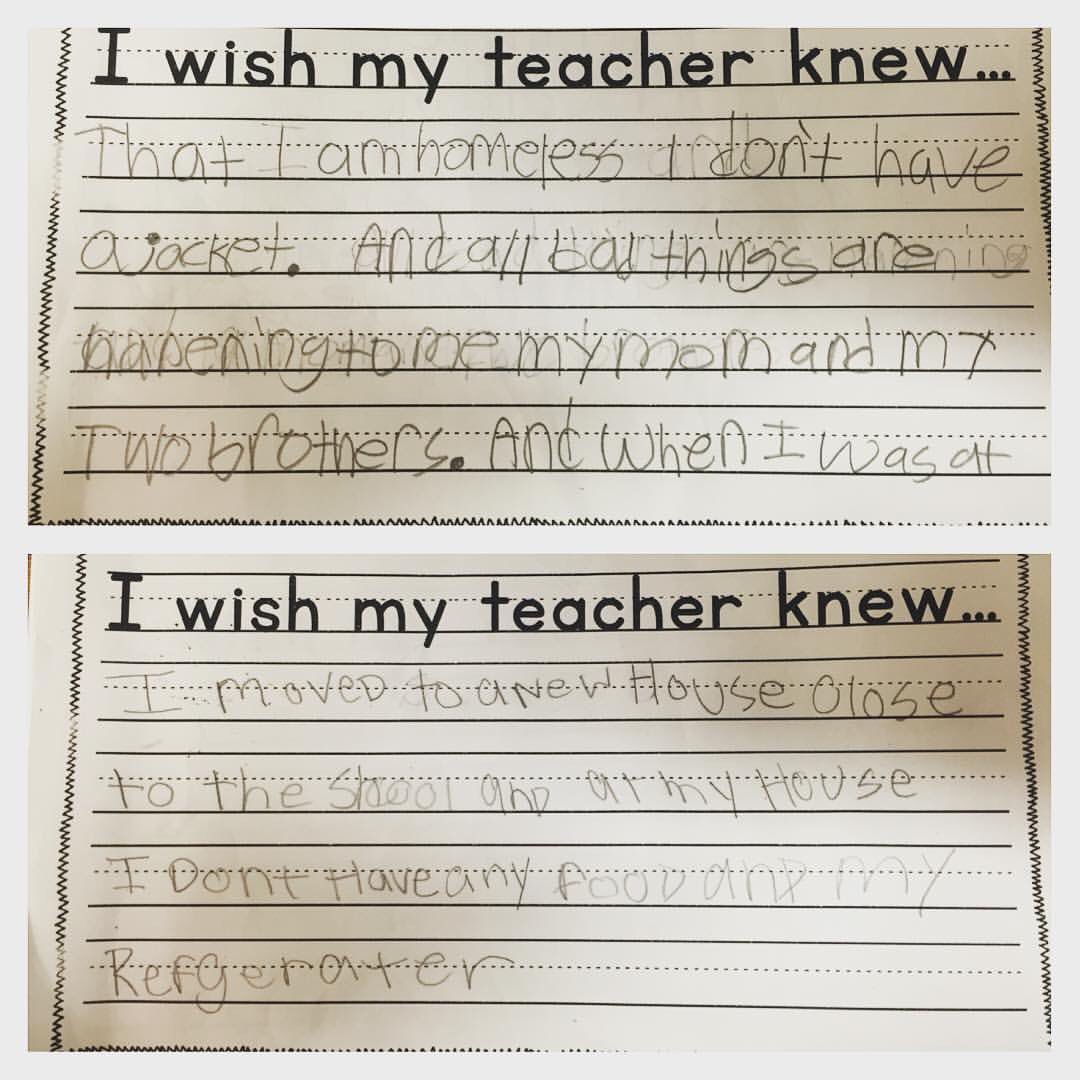 I wish my teacher knew...
That I am homeless I don't have
a jacket. And all bad things are
hapening to me my mom and my
Two brothers. And when I was at
I wish my teacher knew...
I moved to a new House Close
to the shcool and at my House
I Dont Have any food and my
Refgerater